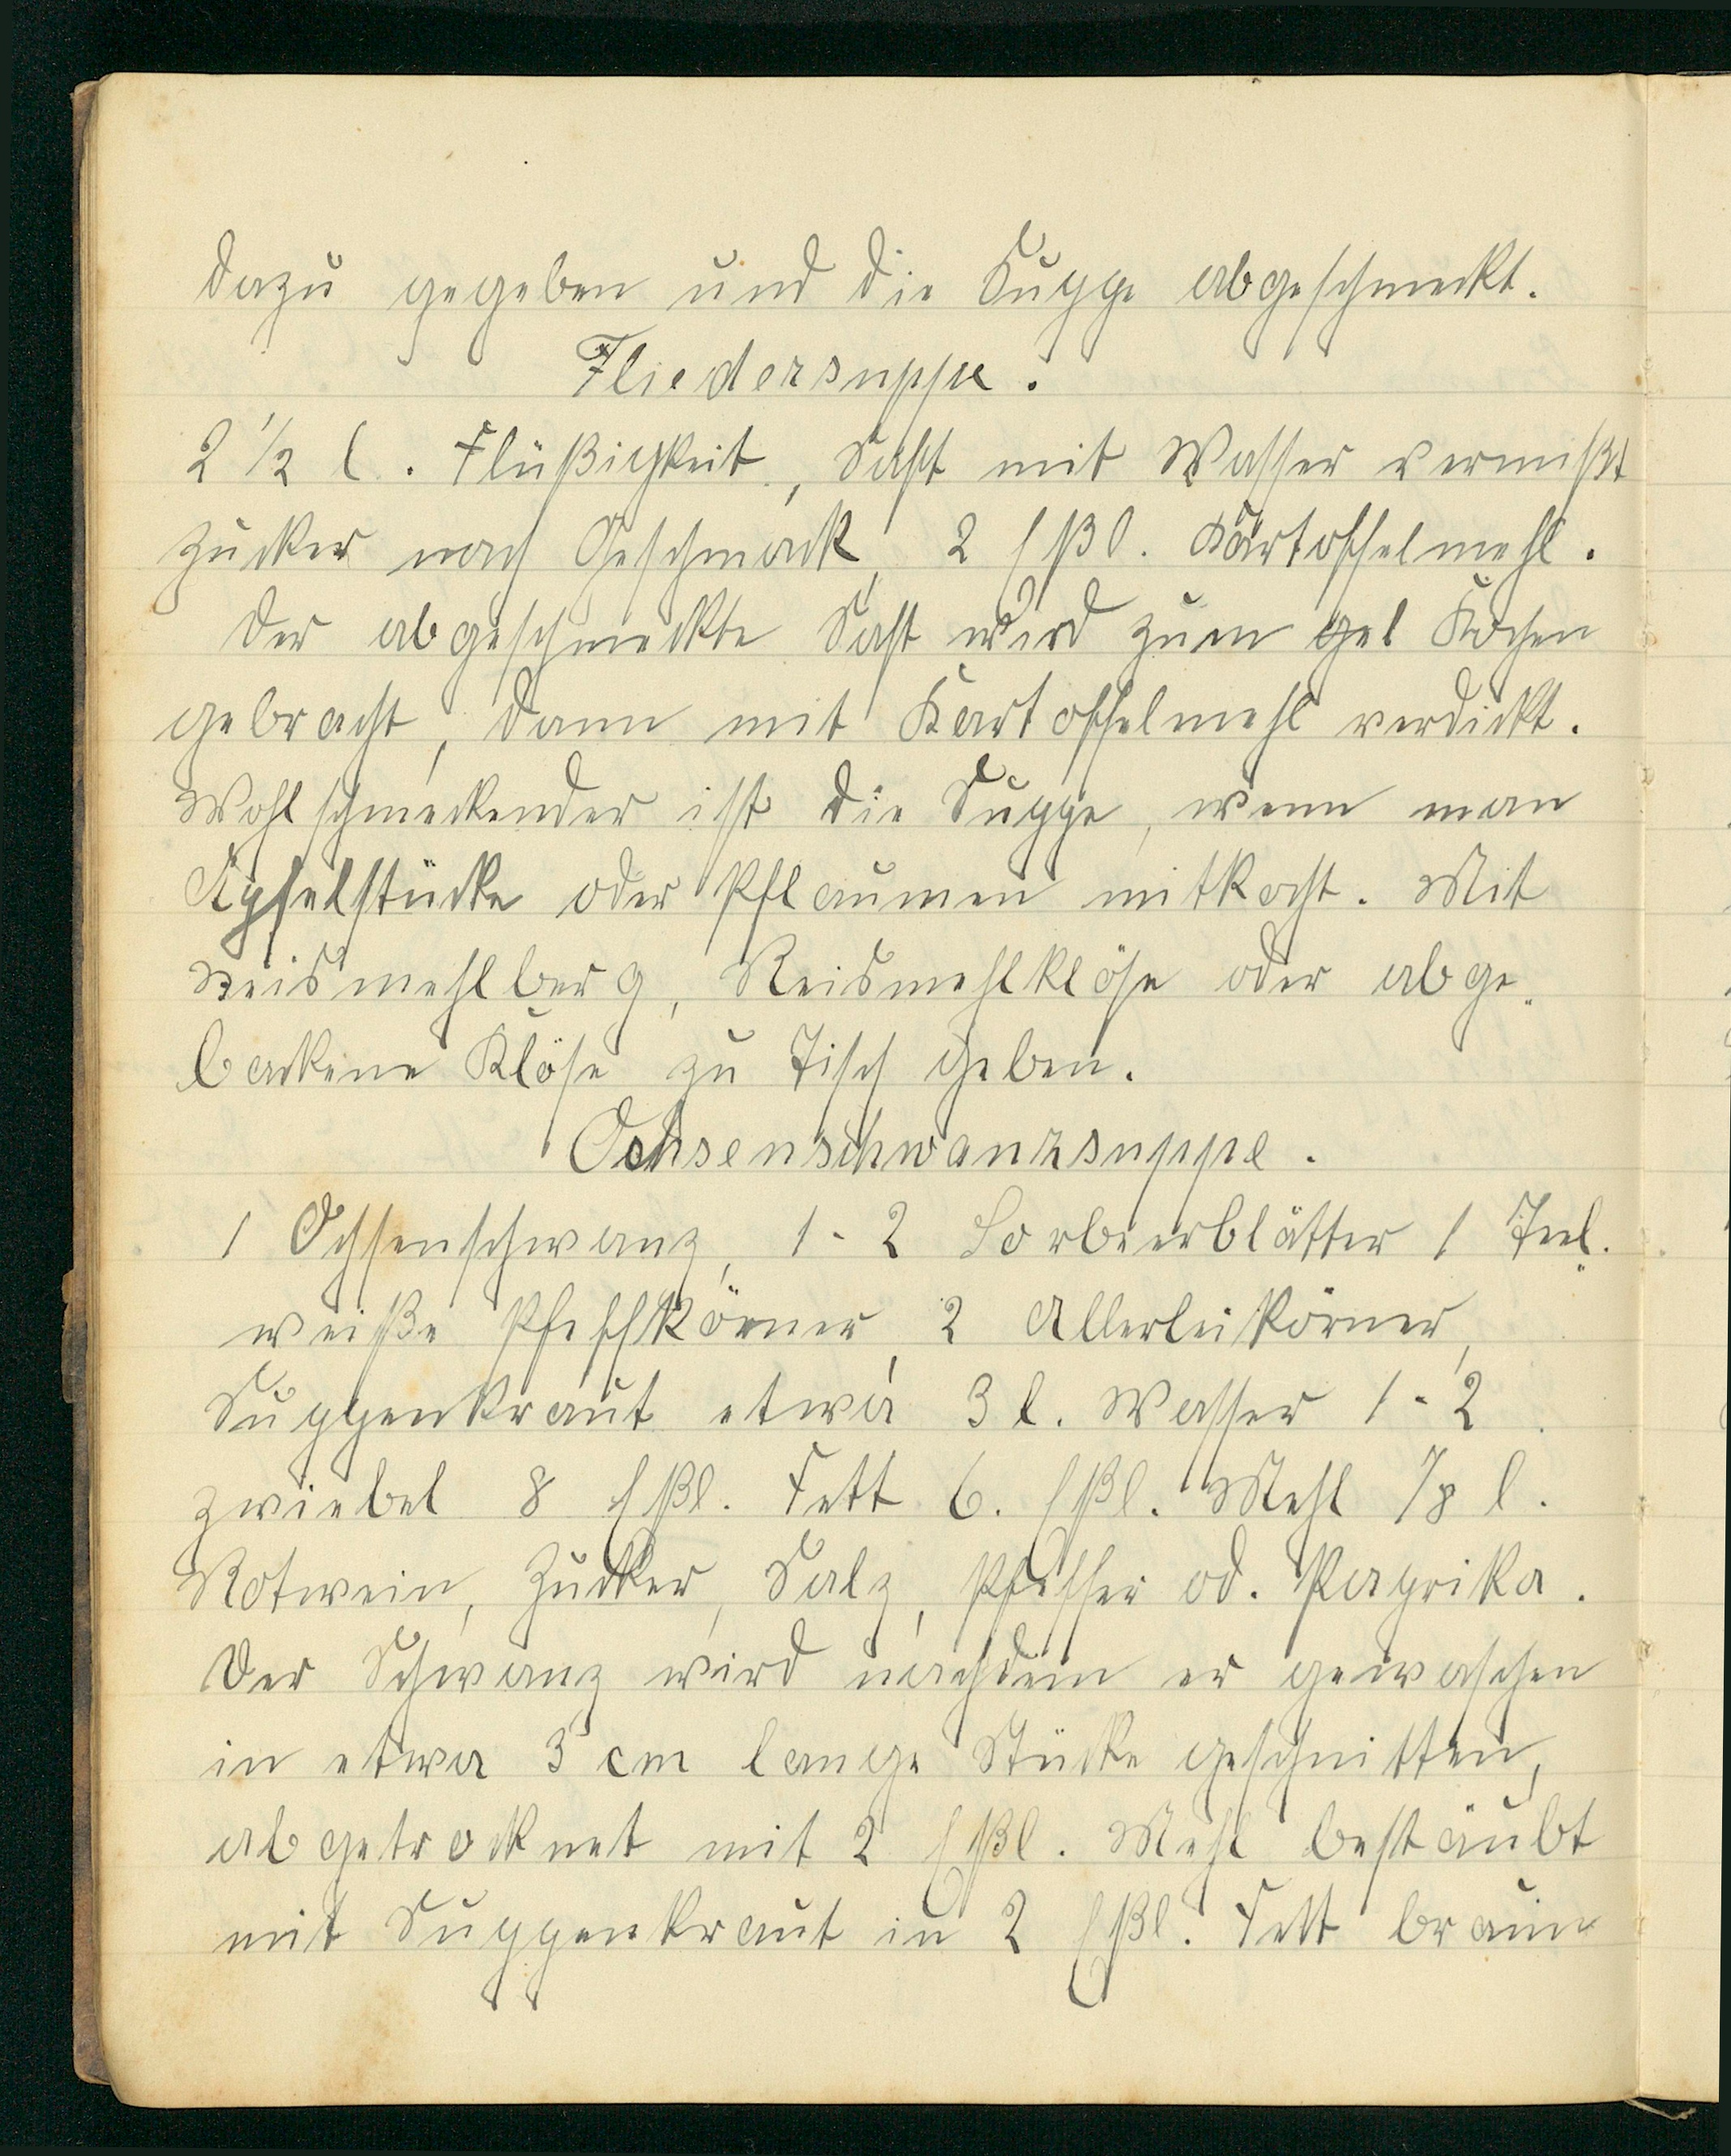 dazu gegeben und die Suppe abgeschmeckt.
Fliedersuppe.
2 1/2 l. Flüßigkeit, Saft mit Wasser vermißt
Zucker nach Geschmack, 2 Eßl. Kartoffelmehl.
Der abgeschmeckte Saft wird zum gel Kochen
gebracht, dann mit Kartoffelmehl verdickt.
Wohlschmeckender ist die Suppe, wenn man
Äpfelstücke oder Pflaumen mitkocht. Mit
Reismehlberg, Reismehlklöse oder abge„
backene Klöse zu Tisch geben.
Ochsenschwanzsuppe.
1 Ochsenschwanz, 1-2 Lorbeerblätter 1 Teel.
weiße Pfeffkörner, 2 Allerleikörner,
Suppenkraut etwa 3 l. Wasser 1-2
Zwiebel 8 Eßl. Fett 6. Eßl. Mehl 1/8 l.
Rotwein, Zucker, Salz, Pfeffer od. Paprika.
Der Schwanz wird nachdem er gewaschen
in etwa 5 cm lange Stücke geschnitten,
abgetrocknet mit 2 Eßl. Mehl bestäubt
mit Suppenkraut in 2 Eßl. Fett braun